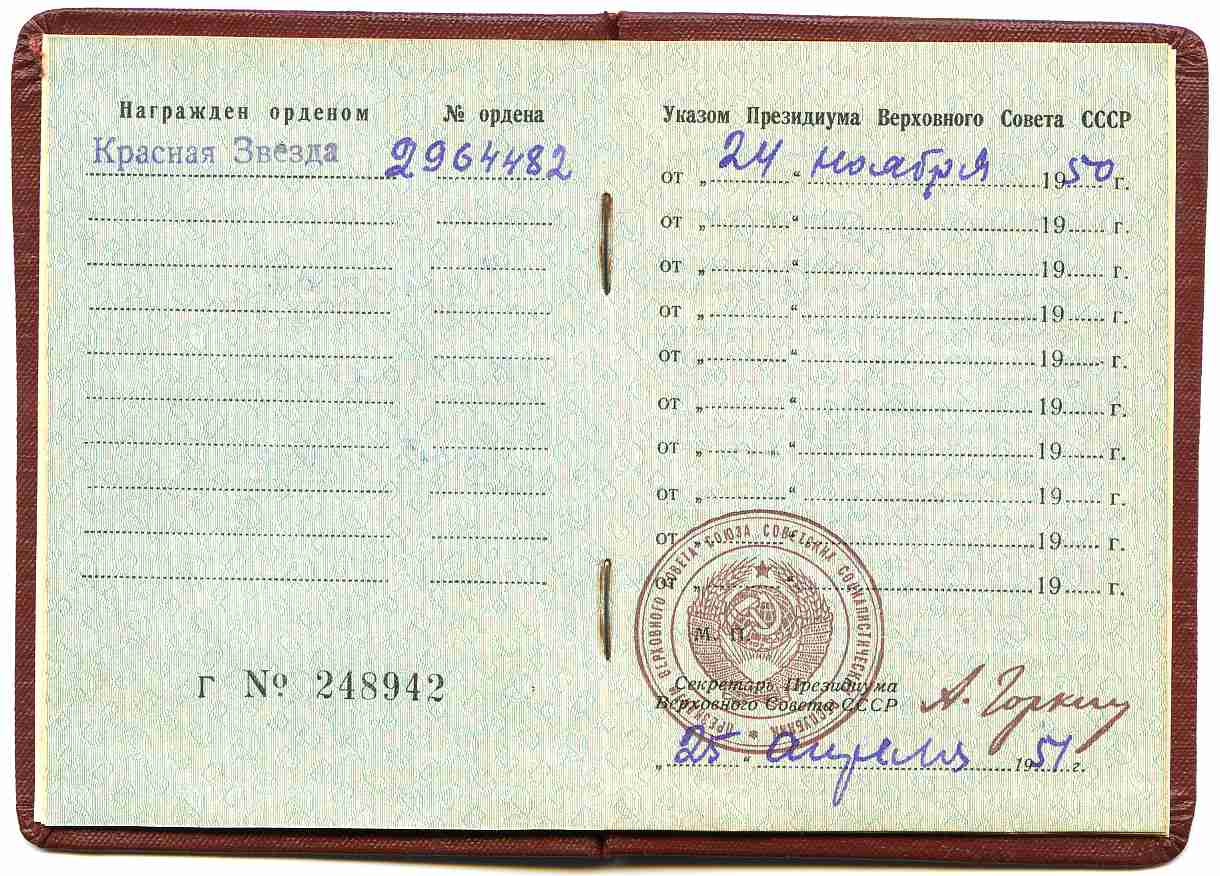 Награжден орденом № ордена
Красная Звезда 2964482
Г № 248942
Указом Президиума Верховного Совета СССР
от „ 24 “ ноября 1950 г.
от „ “ 19 г.
от „ “ 19 г.
от „ “ 19 г.
от „ “ 19 г.
от „ “ 19 г.
от „ “ 19 г.
от „ “ 19 г.
от „ “ 19 г.
от „ “ 19 г.
ПРЕЗИДИУМ ВЕРХОВНОГО СОВЕТА СОЮЗА СОВЕТСКИХ СОЦИАЛИСТИЧЕСКИХ РЕСПУБЛИК
М. П.
Секретарь Президиума
Верховного Совета СССР А. Горкин
„ 25 “ апреля 1951 г.